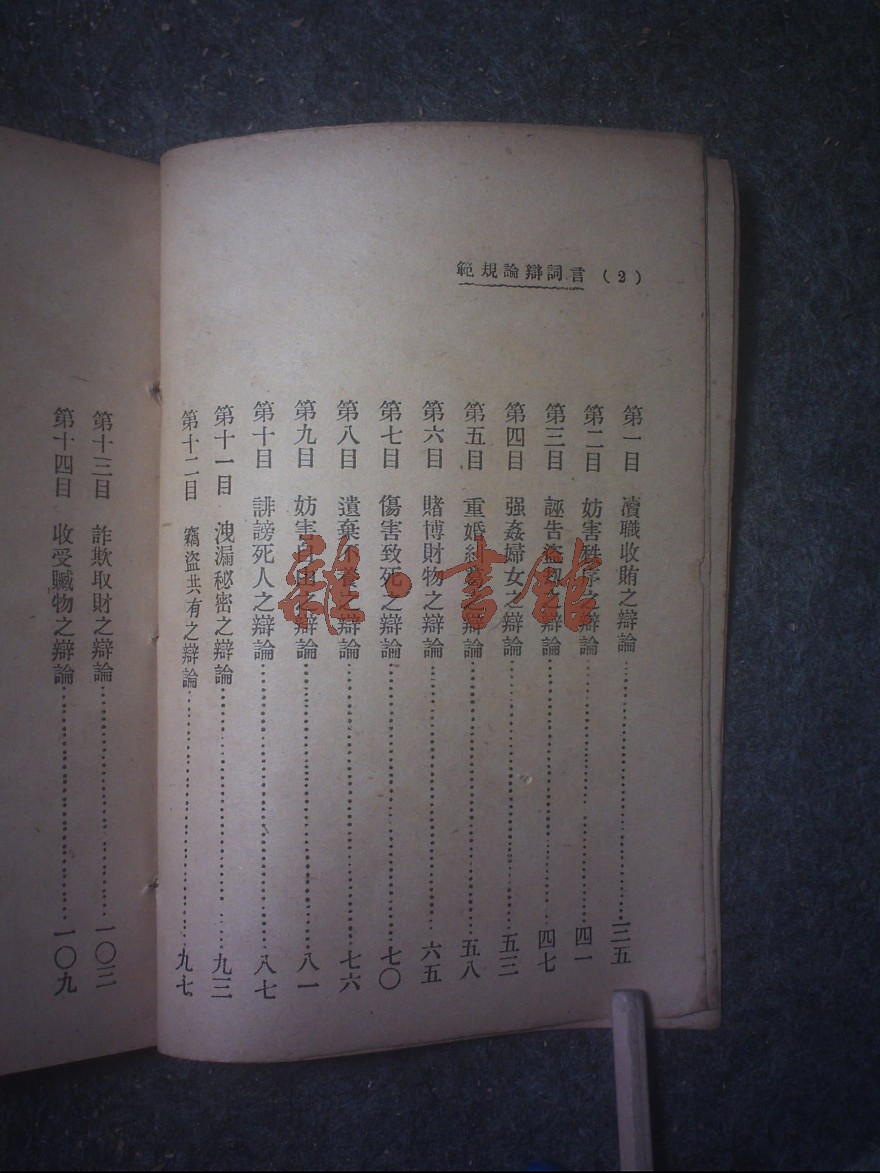 （2）言詞辯論規範
第一目 瀆職收賄之辯論…………三五
第二目 妨害秩序之辯論…………四一
第三目 誣告盜之辯論…………四七
第四目 强姦婦女之辯論…………五三
第五目 重婚之辯論…………五八
第六目 賭博財物之辯論…………六五
第七目 傷害致死之辯論…………七〇
第八目 遺棄不養之辯論…………七六
第九目 妨害自由之辯論…………八一
第十目 誹謗死人之辯論…………八七
第十一目 洩漏秘密之辯論…………九三
第十二目 竊盜共有之辯論…………九七
第十三目 詐欺取財之辯論…………一〇三
第十四目 收受贓物之辯論…………一〇九
雜·書館